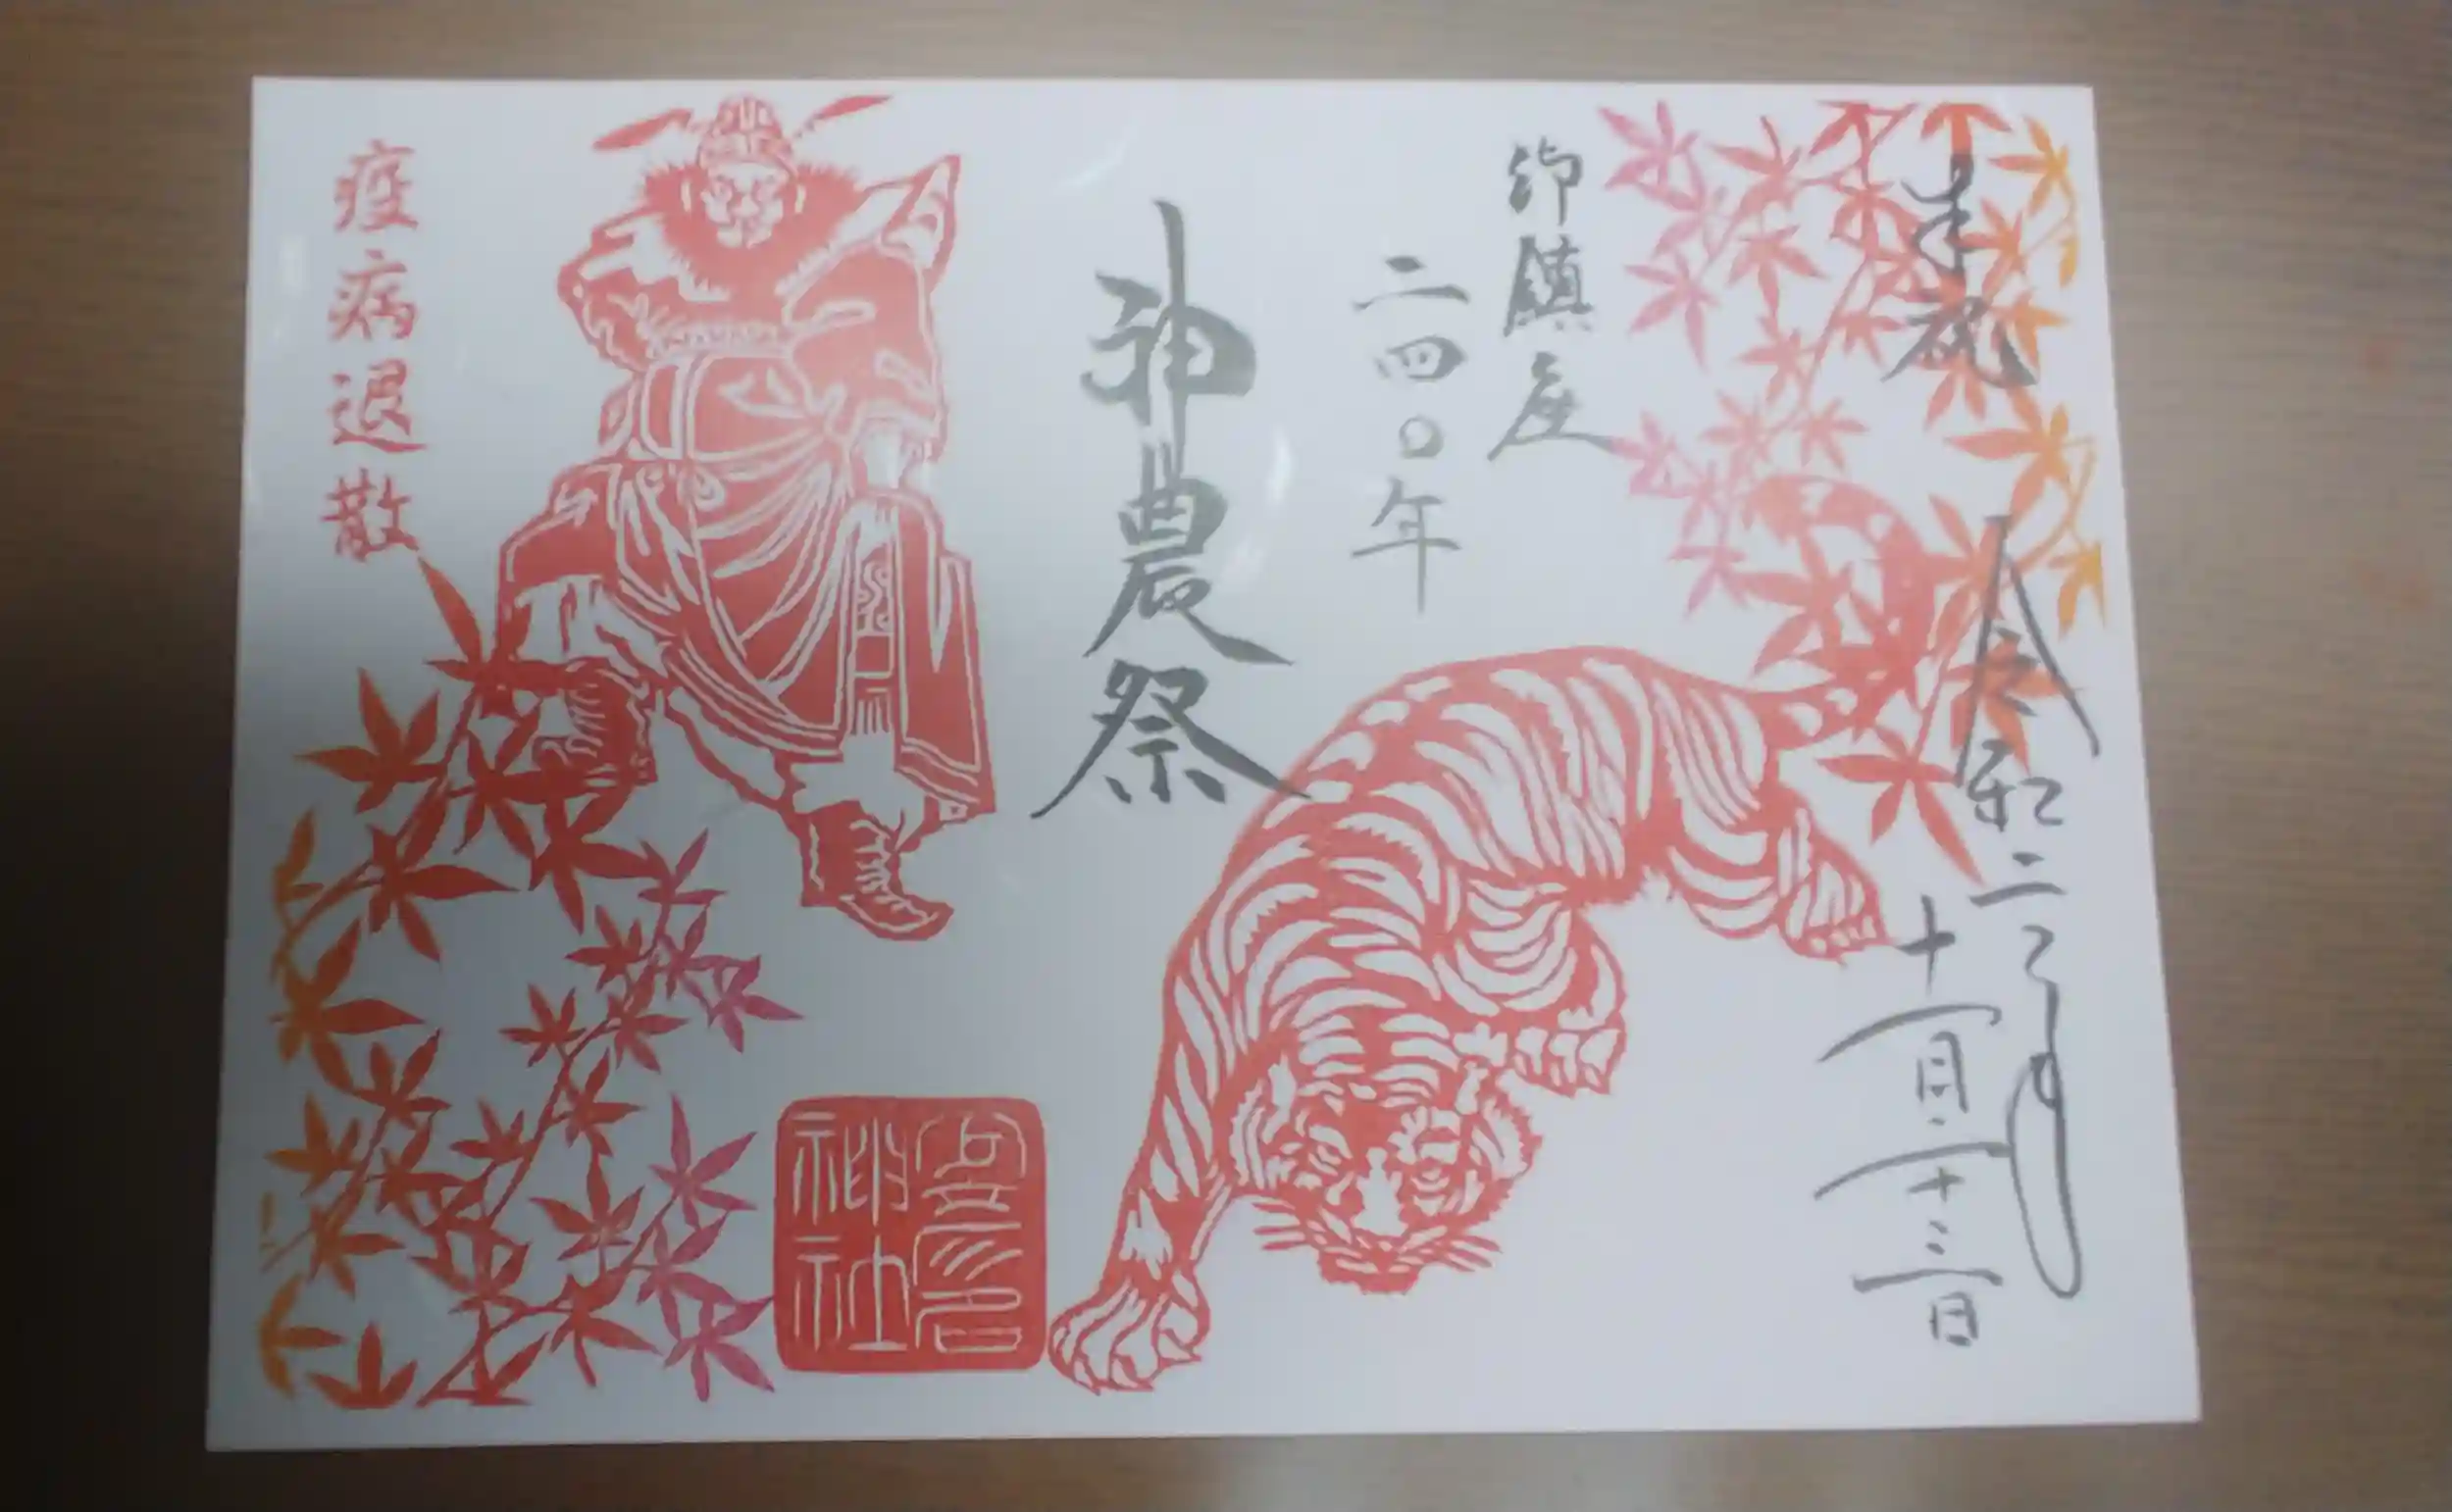 奉祝
令和二年
十一月二十三日
御鎮座
二四〇年
神農祭
少彦名
神社
疫病退散